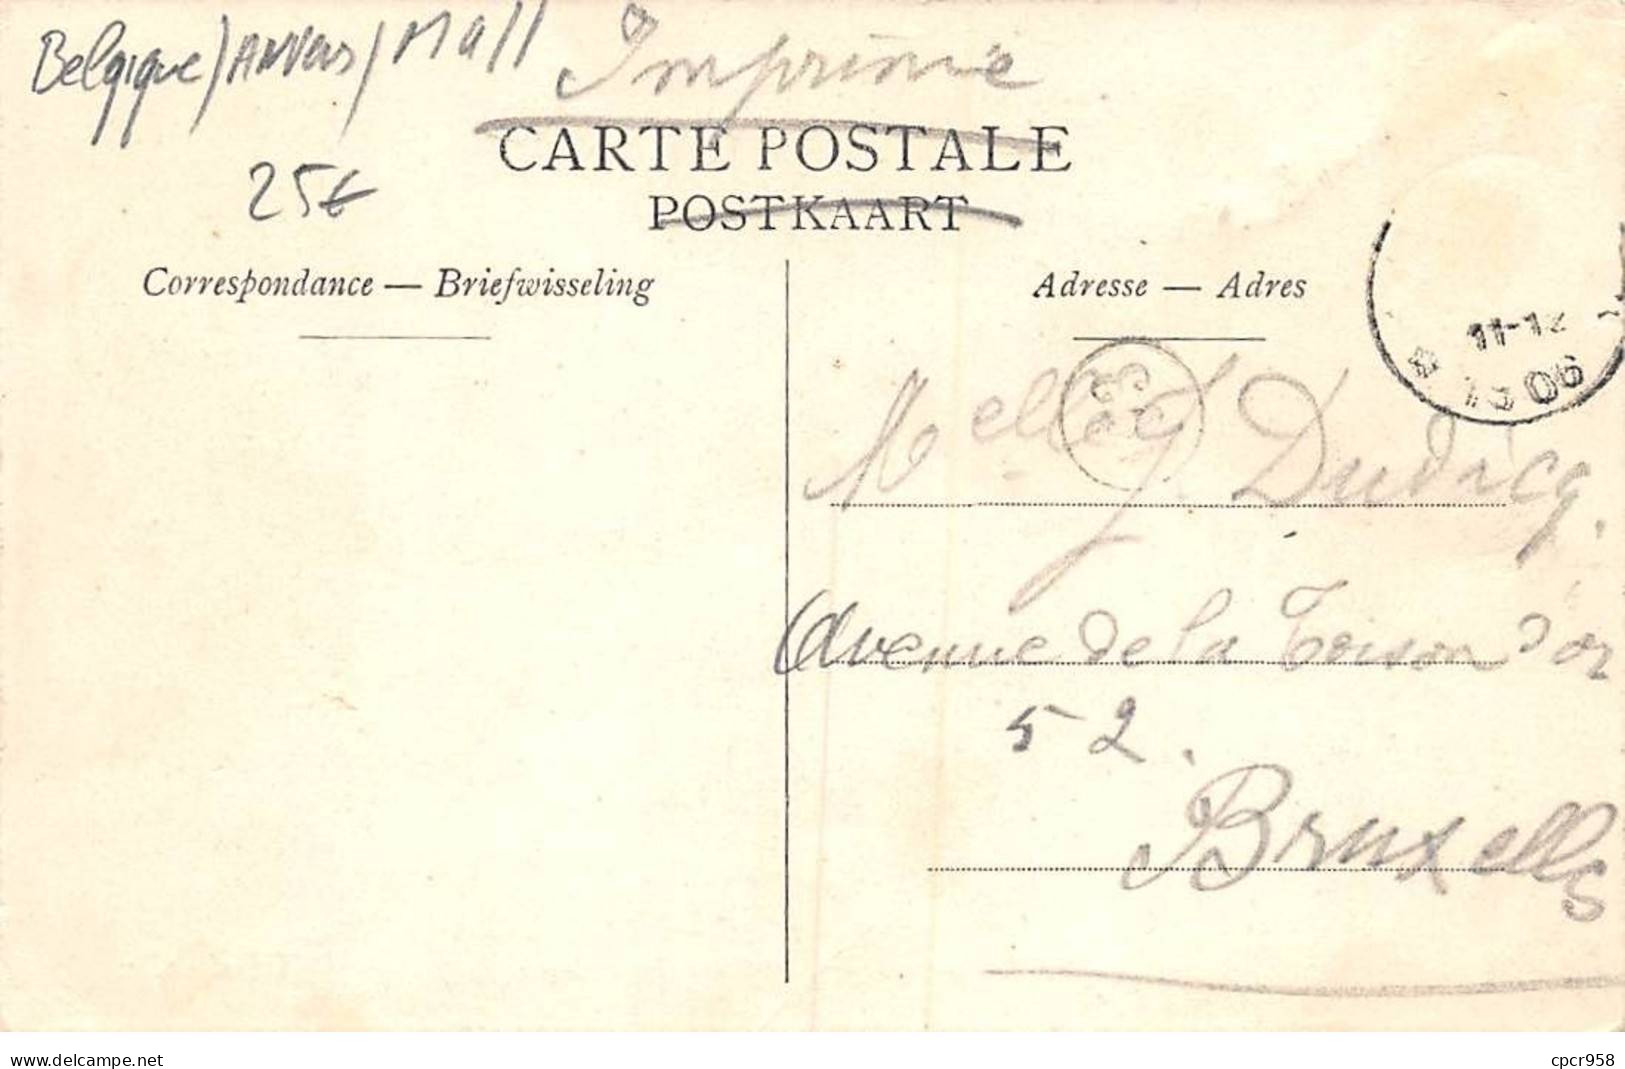 Belgique/Anvers/Mall
Imprimé
CARTE POSTALE
25€
POSTKAART
Correspondance — Briefwisseling
Adresse — Adres
11-12
1306
Melle J. Dudicq.
Avenue de la Toison d'or
52.
Bruxelles
www.delcampe.net
cpcr958